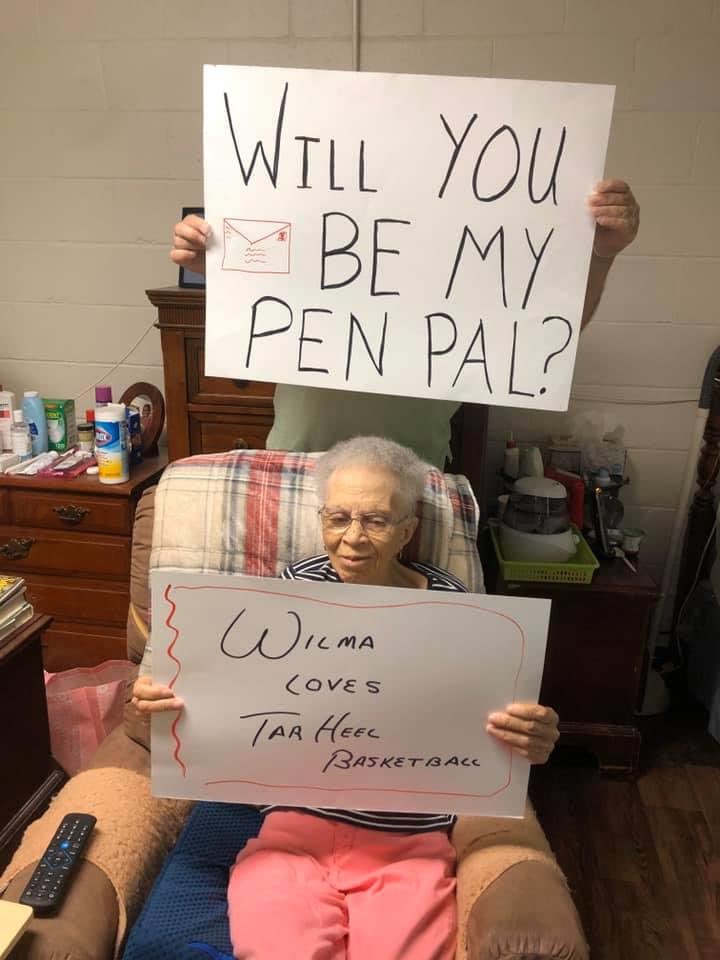 WILL YOU
BE MY
PEN PAL?
WILMA
LOVES
TAR HEEL
BASKETBALL